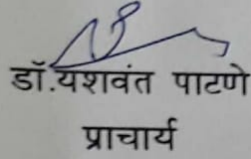 डॉ.यशवंत पाटणे
प्राचार्य